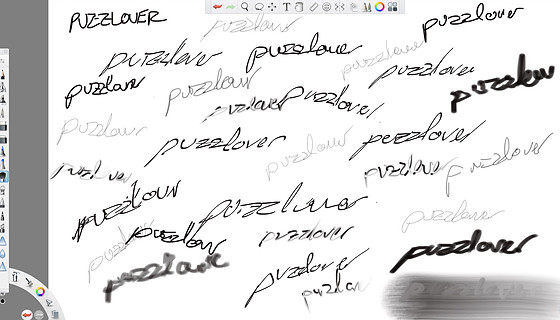 PUZZLOVER
puzzlover
puzzlover
puzzlover
puzzlover
puzzlover
puzzlover
puzzlover
puzzlover
puzzlover
puzzlover
puzzlover
puzzlover
puzzlover
puzzlover
puzzlover
puzzlover
puzzlover
puzzlover
puzzlover
puzzlover
puzzlover
puzzlover
puzzlover
puzzlover
puzzlover
puzzlover
puzzlover